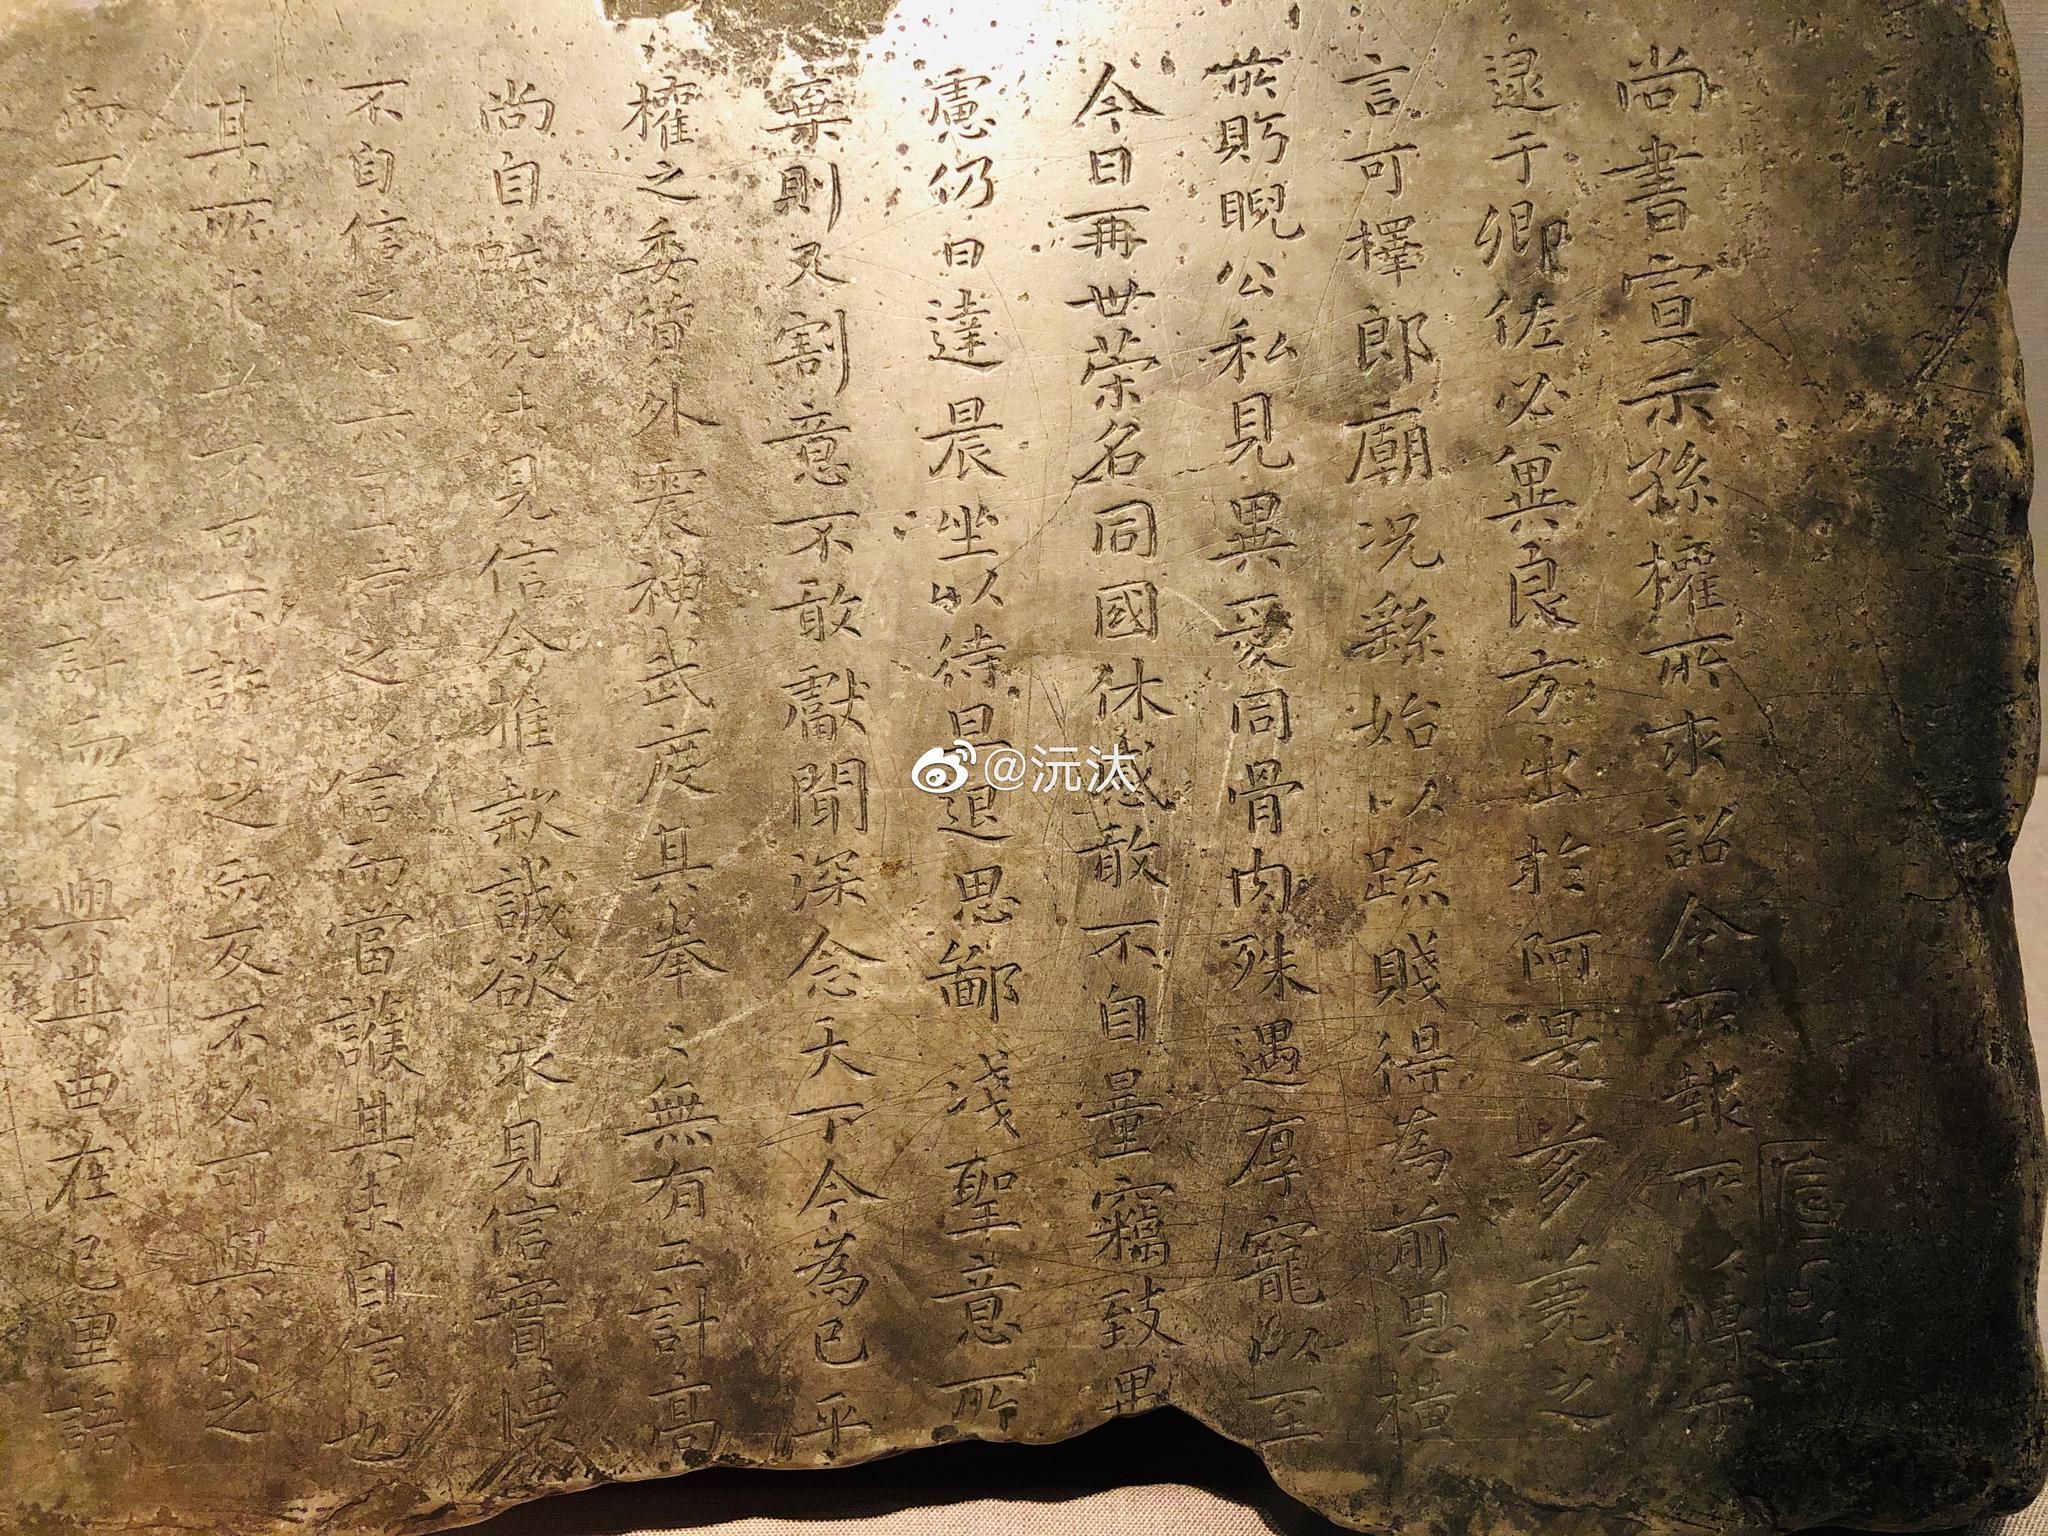 尚書宣示孫權所求詔令所報所以博示
逮于卿佐必異良方出於阿是芻蕘之
言可擇郎廟況繇始以疏賤得為前恩橫
所眄睨公私見異愛同骨肉殊遇厚寵以至
今日再世榮名同國休慼敢不自量竊致愚
慮仍日達晨坐以待旦退思鄙淺聖意所
棄則又割意不敢獻聞深念天下今為已平
權之委質外震神武度其拳〻無有二計高
尚自疏況未見信今推款誠欲求見信實懷
不自信之心亦宜待之以信而當護其未自信也
其所求者不可不許之而反不必可與求之
而不許勢必自絕許而不與其曲在己里語
@沅汰